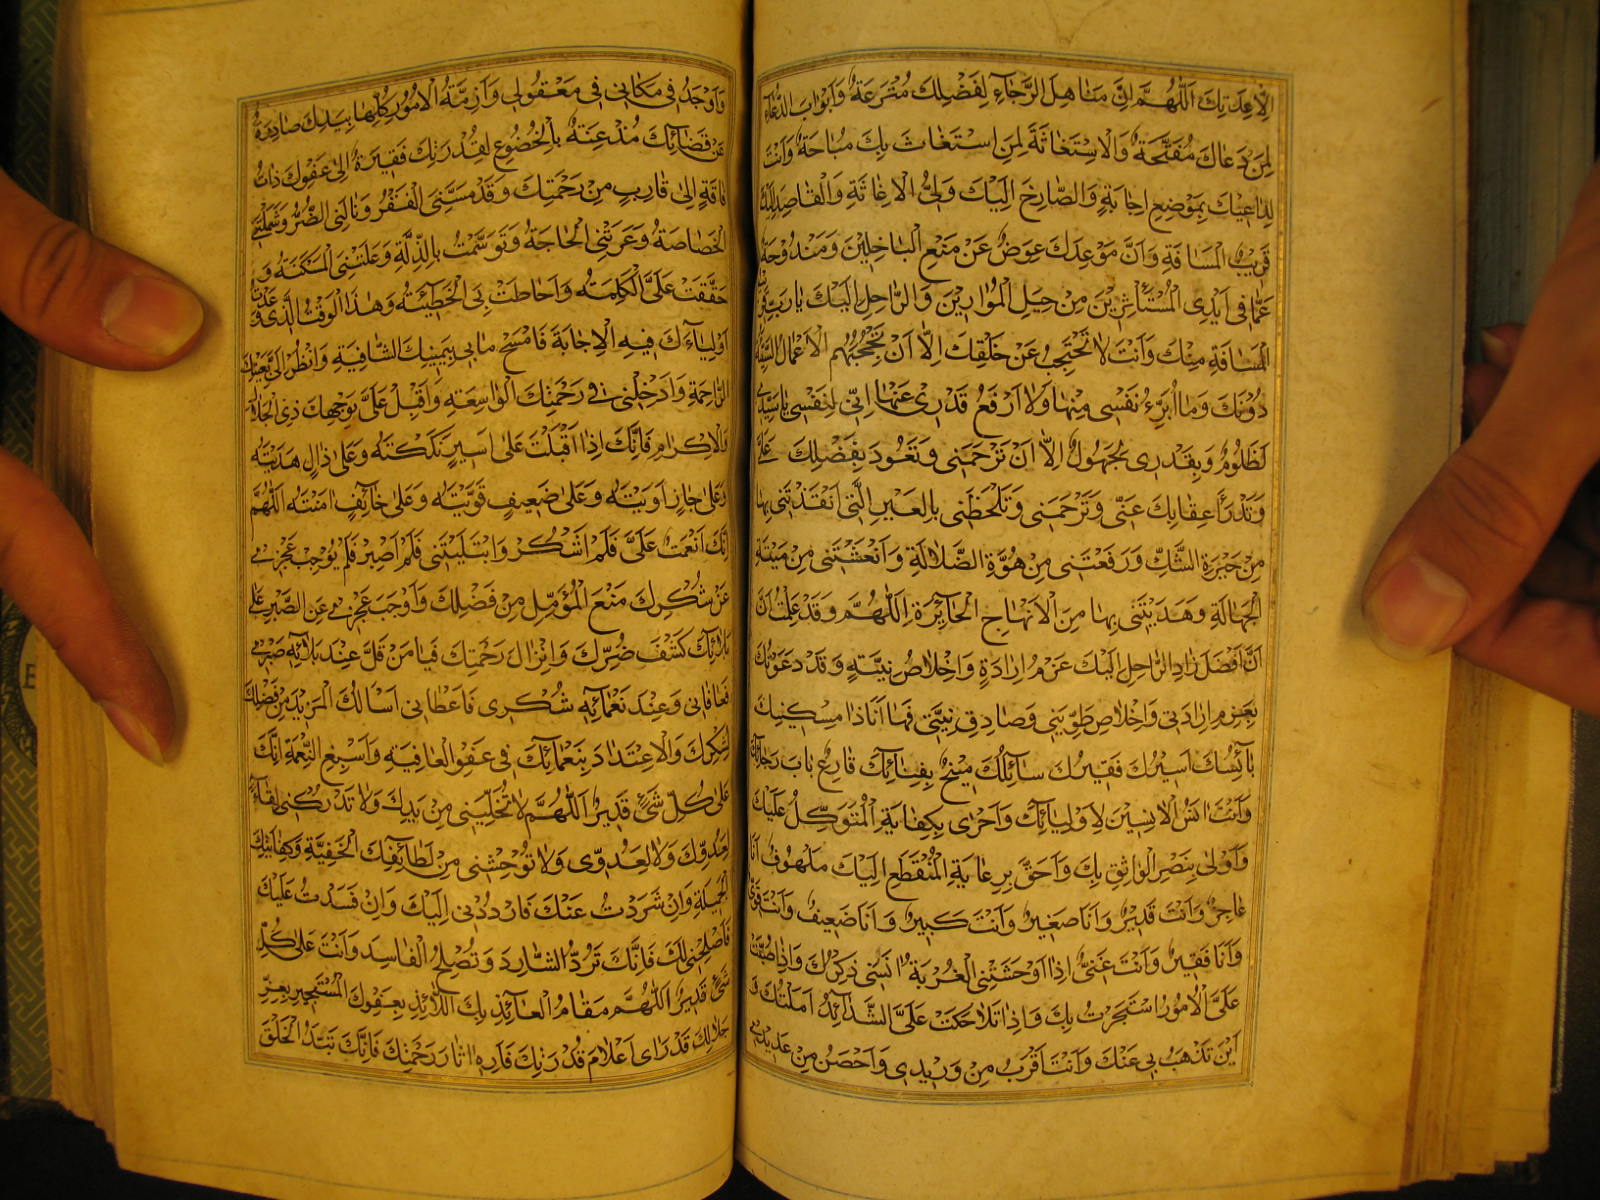 اِلّا عِدَتِكَ اَللّٰهُمَّ اِنَّ مَنَاهِلَ الرَّجَآءِ لِفَضْلِكَ مُتْرَعَةٌ وَاَبْوَابَ الدُّعَآءِ
لِمَنْ دَعَاكَ مُفَتَّحَةٌ وَالْاِسْتِغَاثَةَ لِمَنِ اسْتَغَاثَ بِكَ مُبَاحَةٌ وَاَنْتَ
لِدَاعِيْكَ بِمَوْضِعِ اِجَابَةٍ وَالصَّارِخِ اِلَيْكَ وَلِيُّ الْاِغَاثَةِ وَالْقَاصِدِ اِلَيْكَ
قَرِيْبُ الْمَسَافَةِ وَاَنَّ مَوْعِدَكَ عِوَضٌ عَنْ مَنْعِ الْبَاخِلِيْنَ وَمَنْدُوْحَةٌ
عَمَّا فِى اَيْدِى الْمُسْتَأْثِرِيْنَ مِنْ حِيَلِ الْمُوَارِبِيْنَ وَالرَّاحِلِ اِلَيْكَ يَا رَبِّ قَرِيْبُ
الْمَسَافَةِ مِنْكَ وَاَنْتَ لَا تَحْتَجِبُ عَنْ خَلْقِكَ اِلَّا اَنْ تَحْجُبَهُمُ الْاَعْمَالُ السَّيِّئَةُ
دُوْنَكَ وَمَا اُبَرِّءُ نَفْسِى مِنْهَا وَلَا اَرْفَعُ قَدْرِى عَنْهَا اِنِّى لِنَفْسِى يَا سَيِّدِى
لَظَلُوْمٌ وَبِقَدْرِى لَجَهُوْلٌ اِلَّا اَنْ تَرْحَمَنِى وَتَعُوْدَ بِفَضْلِكَ عَلَىَّ
وَتَدْرَأَ عِقَابَكَ عَنِّى وَتَرْحَمَنِى وَتَلْحَظَنِى بِالْعَيْنِ الَّتِى اَنْقَذْتَنِى بِهَا
مِنْ حَيْرَةِ الشَّكِّ وَرَفَعْتَنِى مِنْ هُوَّةِ الضَّلَالَةِ وَاَنْعَشْتَنِى مِنْ مَيْتَةِ
الْجَهَالَةِ وَهَدَيْتَنِى بِهَا مِنَ الْاَنْهَاجِ الْحَآئِرَةِ اَللّٰهُمَّ وَقَدْ عَلِمْتُ اَنَّ
اَنَّ اَفْضَلَ زَادِ الرَّاحِلِ اِلَيْكَ عَزْمُ اِرَادَةٍ وَاِخْلَاصُ نِيَّتِهٖ وَقَدْ دَعَوْتُكَ
بِعَزْمِ اِرَادَتِى وَاِخْلَاصِ طَوِيَّتِى وَصَادِقِ نِيَّتِى فَهَا اَنَا ذَا مِسْكِيْنُكَ
بَآئِسُكَ اَسِيْرُكَ فَقِيْرُكَ سَآئِلُكَ مُنِيْخٌ بِفِنَآئِكَ قَارِعُ بَابَ رَجَآئِكَ
وَاَنْتَ اٰنَسُ الْاٰنِسِيْنَ لِاَوْلِيَآئِكَ وَاَحْرٰى بِكِفَايَةِ الْمُتَوَكِّلِ عَلَيْكَ
وَاَوْلٰى بِنَصْرِ الْوَاثِقِ بِكَ وَاَحَقُّ بِرِعَايَةِ الْمُنْقَطِعِ اِلَيْكَ مَلْهُوْفٌ اَنَا
عَاجِزٌ وَاَنْتَ قَدِيْرٌ وَاَنَا صَغِيْرٌ وَاَنْتَ كَبِيْرٌ وَاَنَا ضَعِيْفٌ وَاَنْتَ قَوِىٌّ
وَاَنَا فَقِيْرٌ وَاَنْتَ غَنِىٌّ اِذَا اَوْحَشَتْنِى الْغُرْبَةُ اٰنَسَنِى ذِكْرُكَ وَاِذَا صُبَّتْ
عَلَىَّ الْاُمُوْرُ اسْتَجَرْتُ بِكَ وَاِذَا تَلَاحَكَتْ عَلَىَّ الشَّدَآئِدُ اَمَّلْتُكَ وَ
اَيْنَ تَذْهَبُ بِى عَنْكَ وَاَنْتَ اَقْرَبُ مِنْ وَرِيْدِى وَاَحْصَنُ مِنْ عَدِيْدِى
وَاَوْجَدُ فِى مَكَانِى فِى مَعْقُوْلِى وَاَزِمَّةُ الْاُمُوْرِ كُلِّهَا بِيَدِكَ صَادِرَةٌ
عَنْ قَضَآئِكَ مُذْعِنَةٌ بِالْخُضُوْعِ لِقُدْرَتِكَ فَقِيْرَةٌ اِلٰى عَفْوِكَ ذَاتُ
فَاقَةٍ اِلٰى قَارِبٍ مِنْ رَحْمَتِكَ وَقَدْ مَسَّنِىَ الْفَقْرُ وَنَالَنِى الضُّرُّ وَشَمِلَتْنِى
الْخَصَاصَةُ وَعَرَتْنِى الْحَاجَةُ وَتَوَسَّمْتُ بِالذِّلَّةِ وَعَلَتْنِى الْمَسْكَنَةُ وَ
حَقَّقَتْ عَلَىَّ الْكَلِمَةُ وَاَحَاطَتْ بِىَ الْخَطِيْئَةُ وَهٰذَا الْوَقْتُ الَّذِى وَعَدْتَ
اَوْلِيَآءَكَ فِيْهِ الْاِجَابَةَ فَامْسَحْ مَا بِى بِيَمِيْنِكَ الشَّافِيَةِ وَانْظُرْ اِلَىَّ بِعَيْنِكَ
الرَّاحِمَةِ وَاَدْخِلْنِى فِى رَحْمَتِكَ الْوَاسِعَةِ وَاَقْبِلْ عَلَىَّ بِوَجْهِكَ ذِى الْجَلَالِ
وَالْاِكْرَامِ فَاِنَّكَ اِذَا اَقْبَلْتَ عَلٰى اَسِيْرٍ فَكَكْتَهُ وَعَلٰى ضَالٍّ هَدَيْتَهُ
وَعَلٰى جَازٍ اٰوَيْتَهُ وَعَلٰى ضَعِيْفٍ قَوَّيْتَهُ وَعَلٰى خَآئِفٍ اٰمَنْتَهُ اَللّٰهُمَّ
اِنَّكَ اَنْعَمْتَ عَلَىَّ فَلَمْ اَشْكُرْ وَابْتَلَيْتَنِى فَلَمْ اَصْبِرْ فَلَمْ يُوْجِبْ عَجْزِى
عَنْ شُكْرِكَ مَنْعَ الْمُؤَمَّلِ مِنْ فَضْلِكَ وَاَوْجَبَ عَجْزِى عَنِ الصَّبْرِ عَلٰى
بَلَآئِكَ كَشْفَ ضُرِّكَ وَاِنْزَالَ رَحْمَتِكَ فَيَا مَنْ قَلَّ عِنْدَ بَلَآئِهِ صَبْرِى
فَعَافَانِى وَعِنْدَ نَعْمَآئِهِ شُكْرِى فَاَعْطَانِى اَسْاَلُكَ الْمَزِيْدَ مِنْ فَضْلِكَ
لِشُكْرِكَ وَالْاِعْتِدَادَ بِنَعْمَآئِكَ فِى عَفْوِ الْعَافِيَةِ وَاَسْبِغِ النِّعْمَةَ اِنَّكَ
عَلٰى كُلِّ شَىْءٍ قَدِيْرٌ اَللّٰهُمَّ لَا تُخَلِّيَنِى مِنْ يَدِكَ وَلَا تَدْرُكْنِى لِقَآءً
لِعَدُوِّكَ وَلَا لِعَدُوِّى وَلَا تُوْحِشْنِى مِنْ لَطَآئِفِكَ الْخَفِيَّةِ وَكِفَايَتِكَ
الْجَمِيْلَةِ وَاِنْ شَرَدْتُ عَنْكَ فَارْدُدْنِى اِلَيْكَ وَاِنْ فَسَدْتُ عَلَيْكَ
فَاَصْلِحْنِى لَكَ فَاِنَّكَ تَرُدُّ الشَّارِدَ وَتُصْلِحُ الْفَاسِدَ وَاَنْتَ عَلٰى كُلِّ
شَىْءٍ قَدِيْرٌ اَللّٰهُمَّ مَقَامُ الْعَآئِذِ بِكَ اللَّآئِذِ بِعَفْوِكَ الْمُسْتَجِيْرِ بِعِزِّ
جَلَالِكَ قَدْ رَاٰى اَعْلَامَ قُدْرَتِكَ فَاَرِهِ اٰثَارَ رَحْمَتِكَ فَاِنَّكَ تَبْتَدِأُ الْخَلْقَ